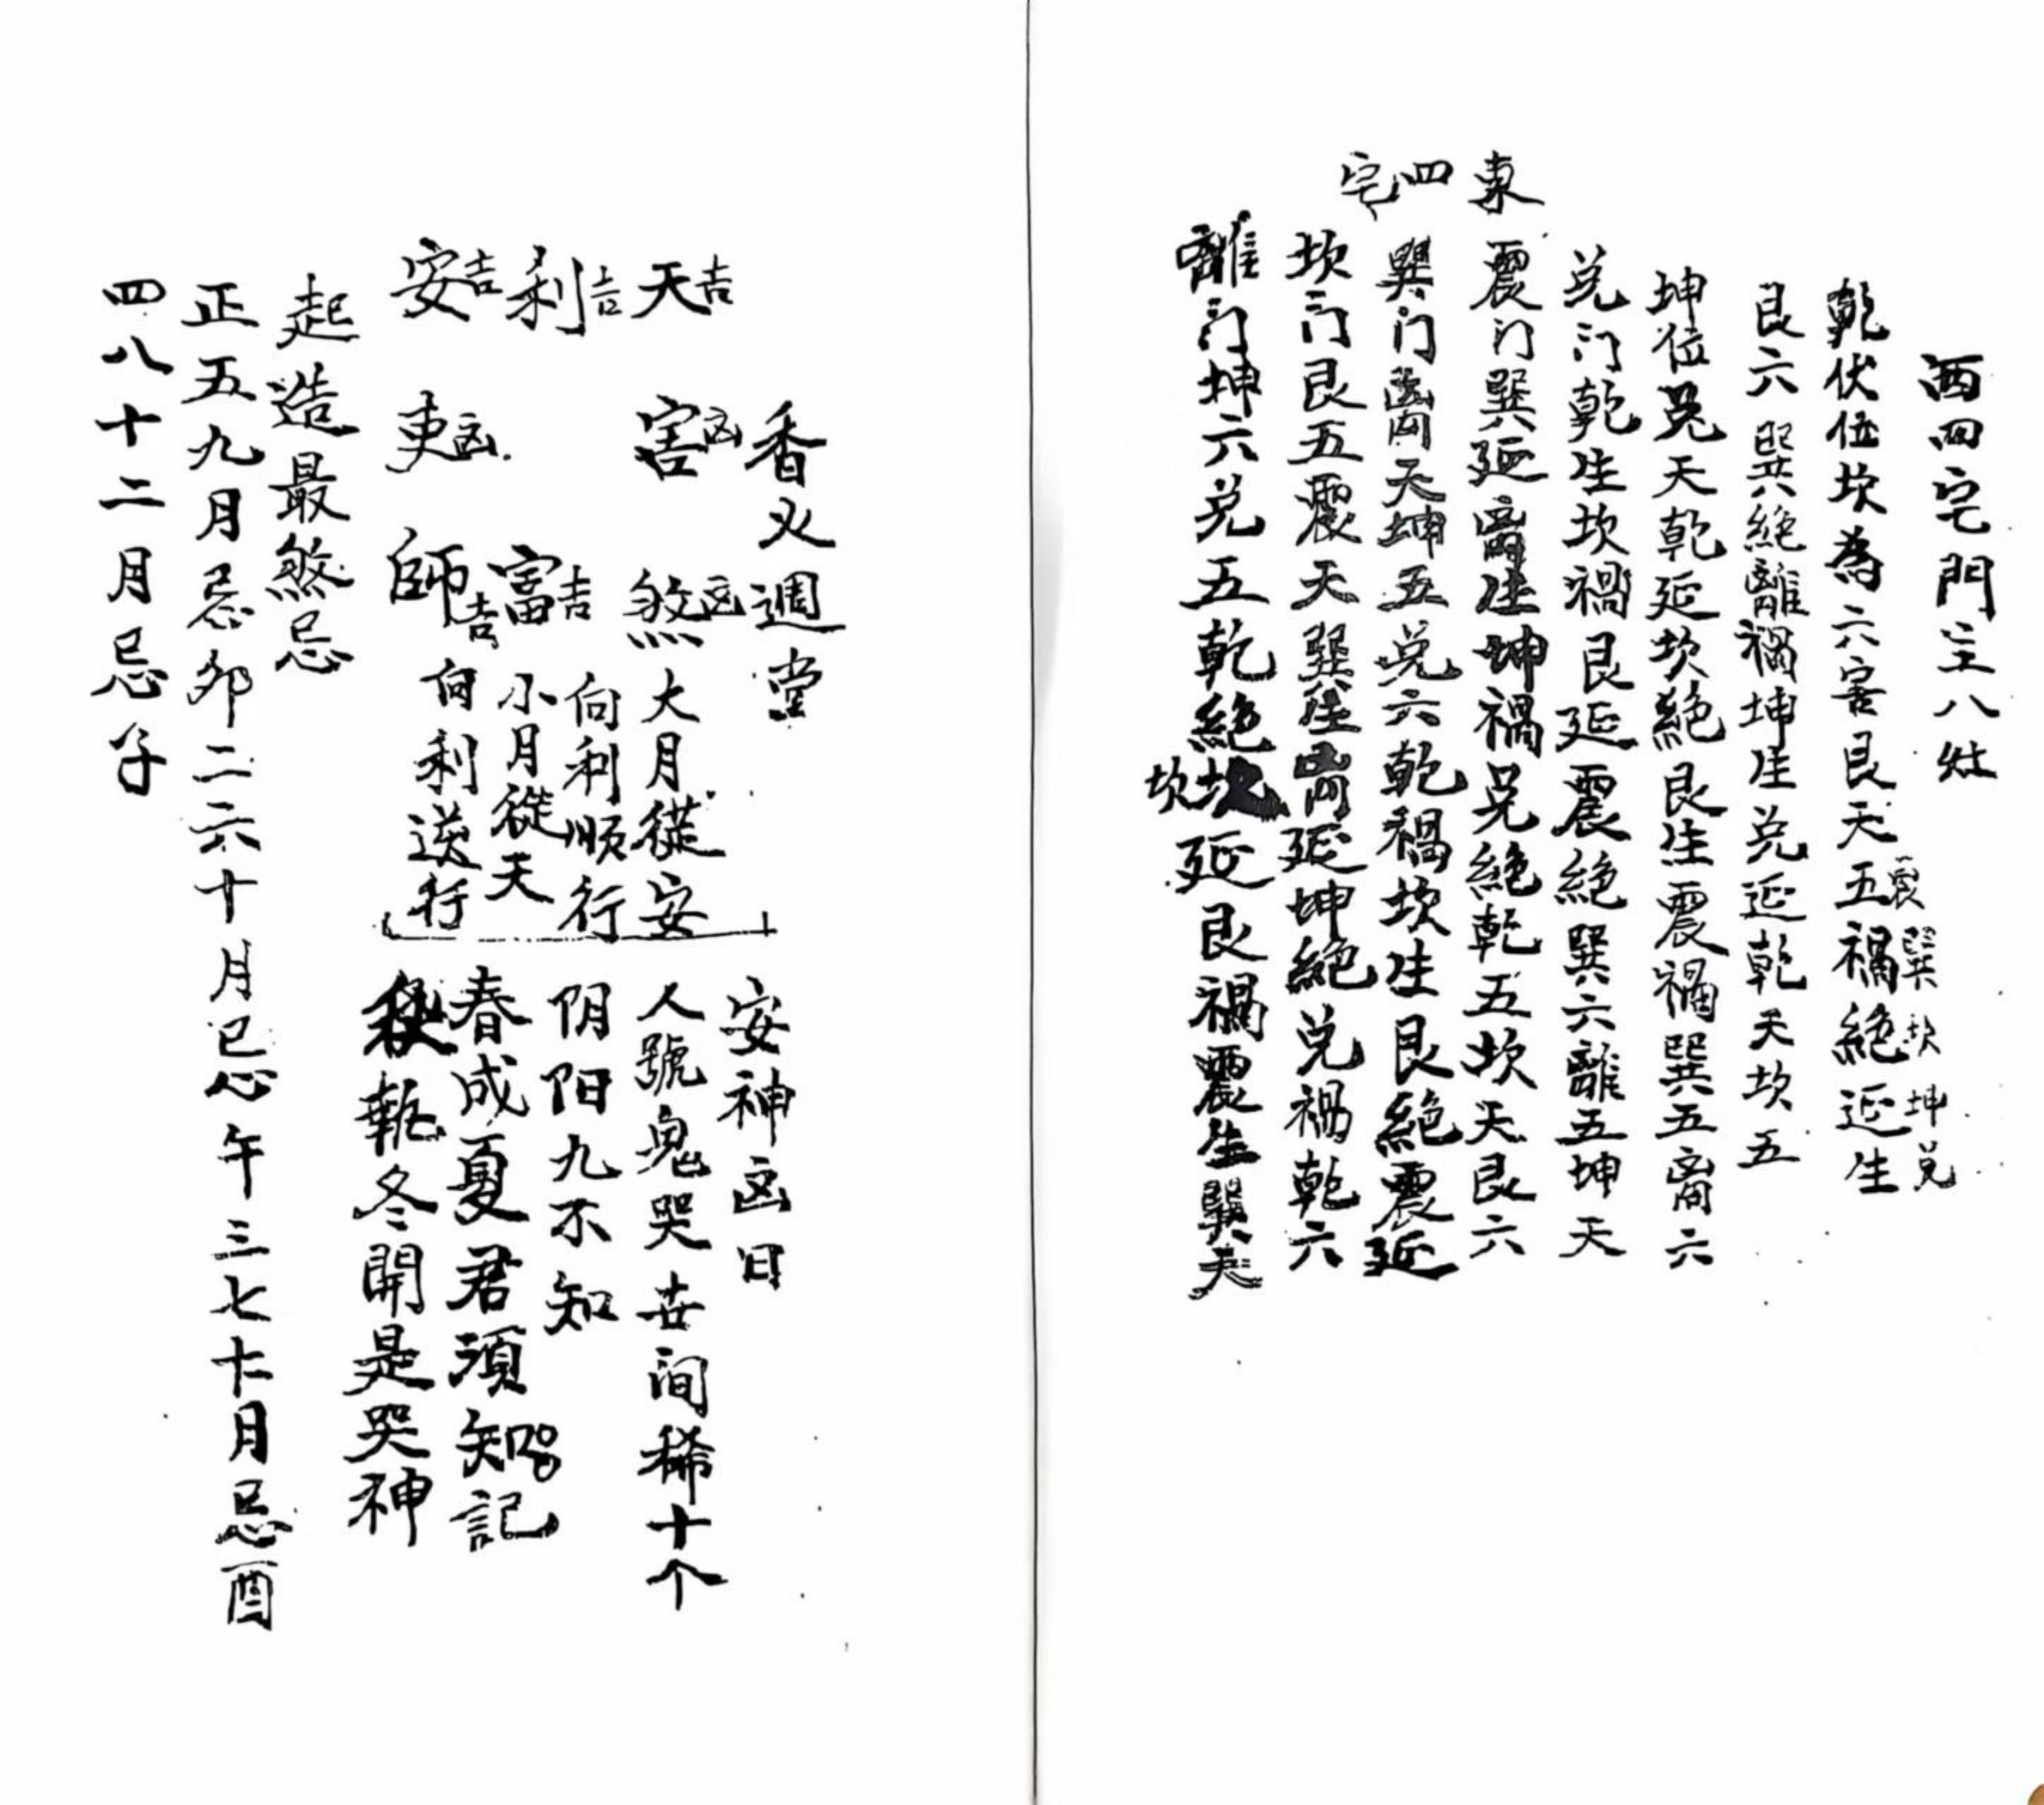 西四宅門主八灶
乾伏位坎為六害艮天五禍絕延生
震巽坎坤兑
艮六巽絕離禍坤生兑延乾天坎五
坤位兑天乾延坎絕艮生震禍巽五离六
兑门乾生坎禍艮延震絕巽六離五坤天
東四宅
震门巽延离生坤禍兑絕乾五坎天艮六
巽门离天坤五兑六乾禍坎生艮絕震延
坎门艮五震天巽生离延坤絕兑禍乾六
離门坤六兑五乾絕坎延艮禍震生巽天
香火週堂
天吉 害凶 煞凶
利吉 富吉
安吉 凶 師吉
大月從安
向利順行
小月從天
向利逆行
安神凶日
人號鬼哭世间稀十个
阴阳九不知
春成夏君須知記
秋執冬開是哭神
起造最煞忌
正五九月忌卯二六十月忌午三七十一月忌酉
四八十二月忌子